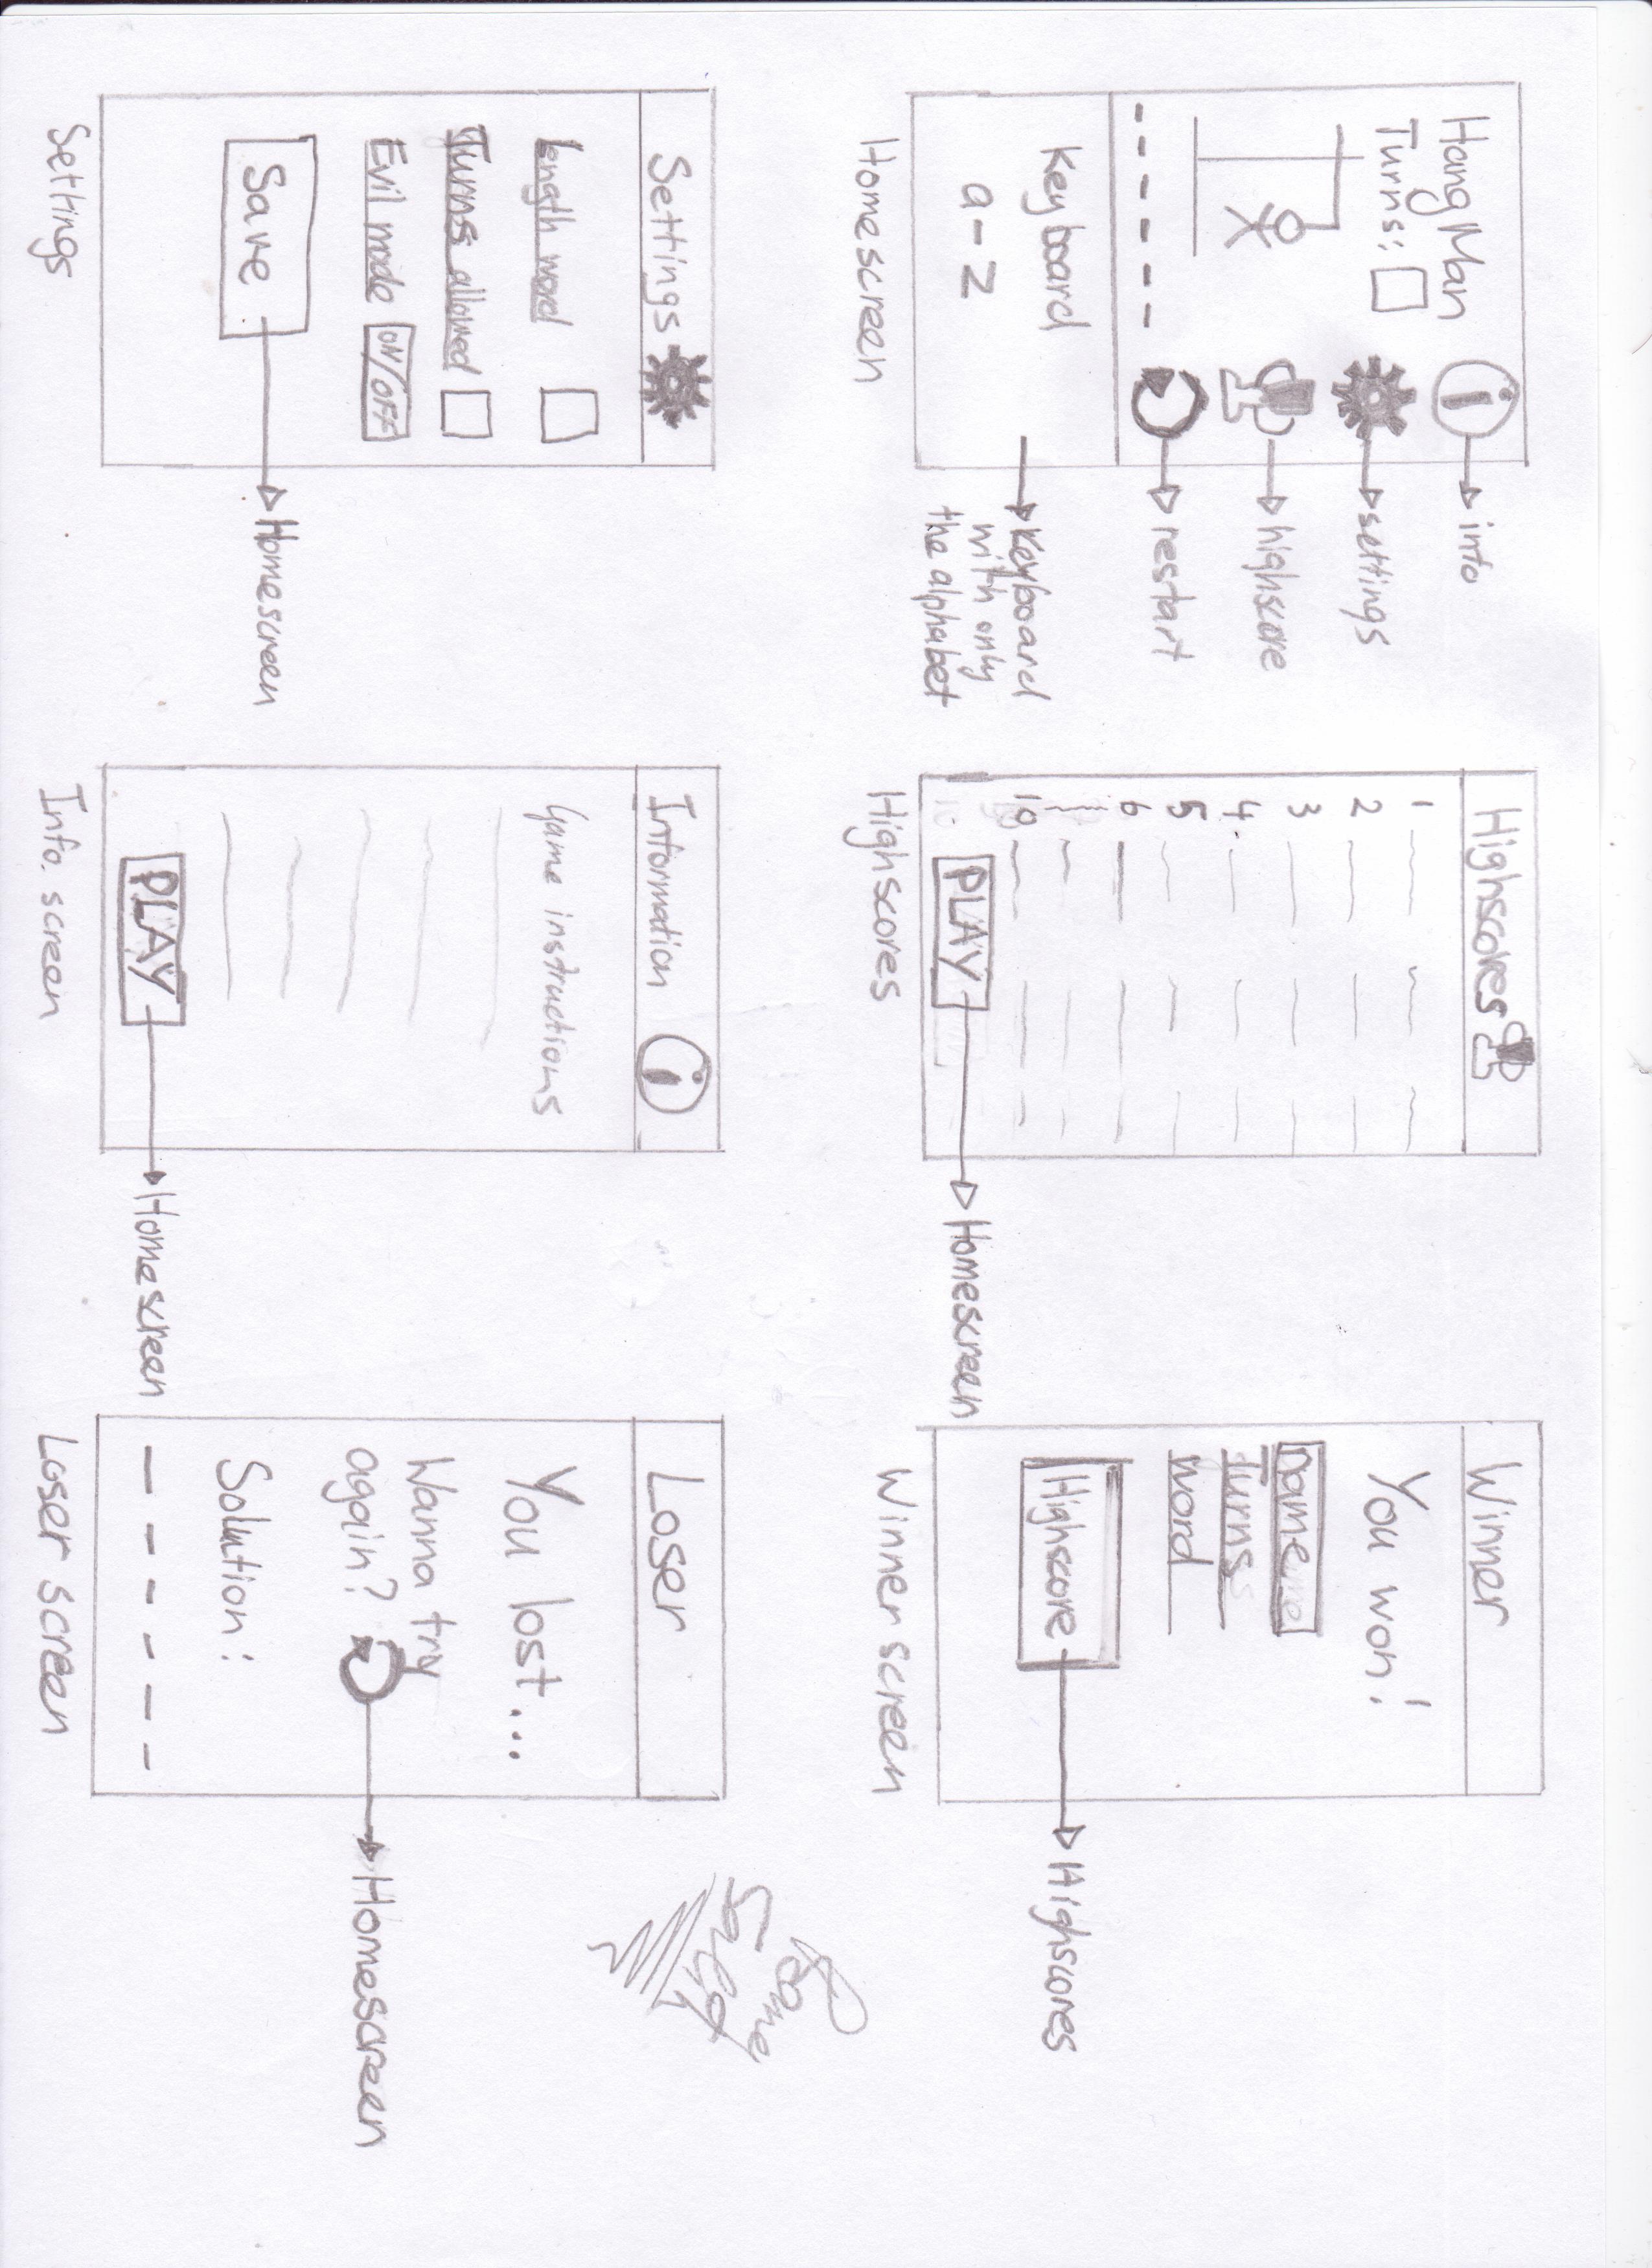 HangMan
Turns:
i
info
settings
highscore
restart
Keyboard
a-z
Keyboard
with only
the alphabet
Homescreen
Highscores
1
2
3
4
5
6
10
PLAY
Homescreen
Highscores
Winner
You won!
name
Turns
word
Highscore
Highscores
Winner screen
Settings
Length word
Turns allowed
Evil mode ON/OFF
Save
Homescreen
Settings
Information i
Game instructions
PLAY
Homescreen
Info. screen
Loser
You lost...
Wanna try
again?
Homescreen
Solution:
Loser screen